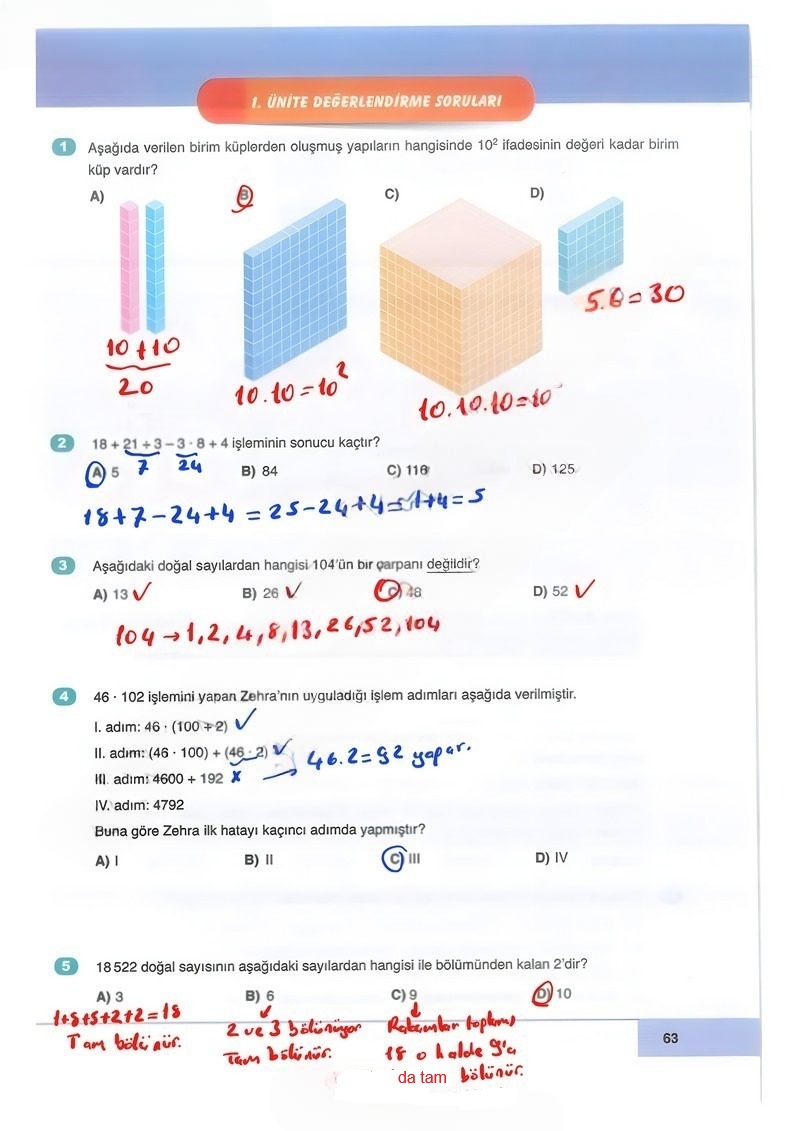 1. ÜNİTE DEĞERLENDİRME SORULARI
1 Aşağıda verilen birim küplerden oluşmuş yapıların hangisinde 10² ifadesinin değeri kadar birim
küp vardır?
A) B) C) D)
5.6=30
10+10
20
10.10=10²
10.10.10=10
2 18 + 21 ÷ 3 – 3 · 8 + 4 işleminin sonucu kaçtır?
7 24
A) 5 B) 84 C) 116 D) 125
18+7-24+4 = 25-24+4=1+4=5
3 Aşağıdaki doğal sayılardan hangisi 104'ün bir çarpanı değildir?
A) 13 ✓ B) 26 ✓ C) 48 D) 52 ✓
104 → 1, 2, 4, 8, 13, 26, 52, 104
4 46 · 102 işlemini yapan Zehra'nın uyguladığı işlem adımları aşağıda verilmiştir.
I. adım: 46 · (100 + 2) ✓
II. adım: (46 · 100) + (46 · 2) ✓
46.2=92 yapar.
III. adım: 4600 + 192 x →
IV. adım: 4792
Buna göre Zehra ilk hatayı kaçıncı adımda yapmıştır?
A) I B) II C) III D) IV
5 18 522 doğal sayısının aşağıdaki sayılardan hangisi ile bölümünden kalan 2'dir?
A) 3 B) 6 C) 9 D) 10
1+8+5+2+2=18
Tam bölünür.
2 ve 3 bölünüyor
Tam bölünür.
Rakamlar toplamı
18 o halde 9'a
da tam bölünür.
63